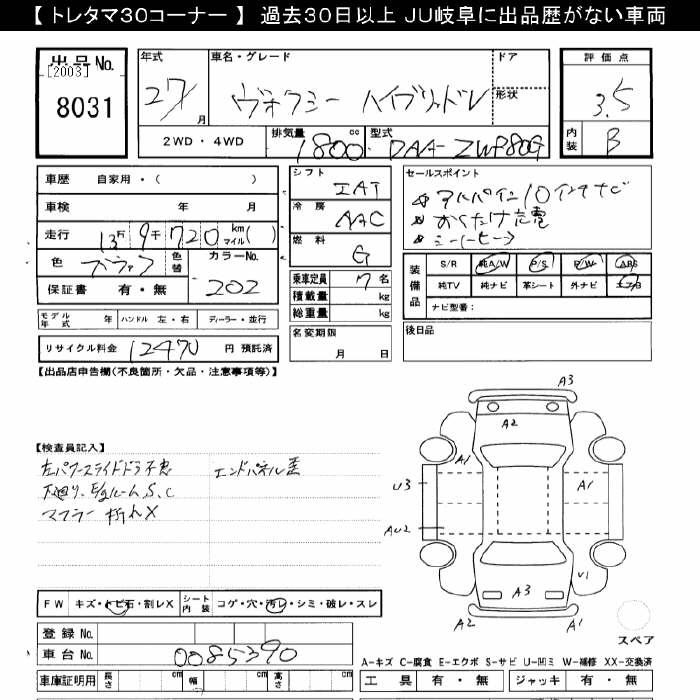 【 トレタマ30コーナー 】 過去30日以上 JU岐阜に出品歴がない車両
出品 No.
[2003]
8031
年式 27 月
車名・グレード ヴォクシー ハイブリッド
ドア
形状
評価点
3.5
内装 B
2WD・4WD
排気量 1800 cc
型式 DAA-ZWR80G
車歴 自家用・( )
車検 年 月
走行 13万 9千 720 km マイル ( )
色 ブラック 色替 カラーNo. 202
保証書 有・無
モデル年式 年 ハンドル 左・右 ディーラー・並行
リサイクル料金 12470 円 預託済
シフト IAT
冷房 AAC
燃料 G
乗車定員 7 名
積載量 kg
総重量 kg
名変期限
月 日
セールスポイント
アルパイン10インチナビ
おくだけ充電
シートヒーター
装備品
S/R 純A/W P/S P/W ABS
純TV 純ナビ 革シート 外ナビ エアB
ナビ型番:
後日品
【出品店申告欄(不良箇所・欠品・注意事項等)】
【検査員記入】
左パワースライドドア不良
エンドパネル歪
下廻り、E/gルームS、C
マフラー折れX
A3
A2
A1
A1
U3
AU2
U1
A3
A2
A1
スペア
FW キズ・トビ石・割レX シート内装 コゲ・穴・汚レ・シミ・破レ・スレ
登録 No.
車台 No. 0085390
車庫証明用 長さ cm 幅 cm 高さ cm
A-キズ C-腐食 E-エクボ S-サビ U-凹ミ W-補修 XX-交換済
工具 有・無 ジャッキ 有・無